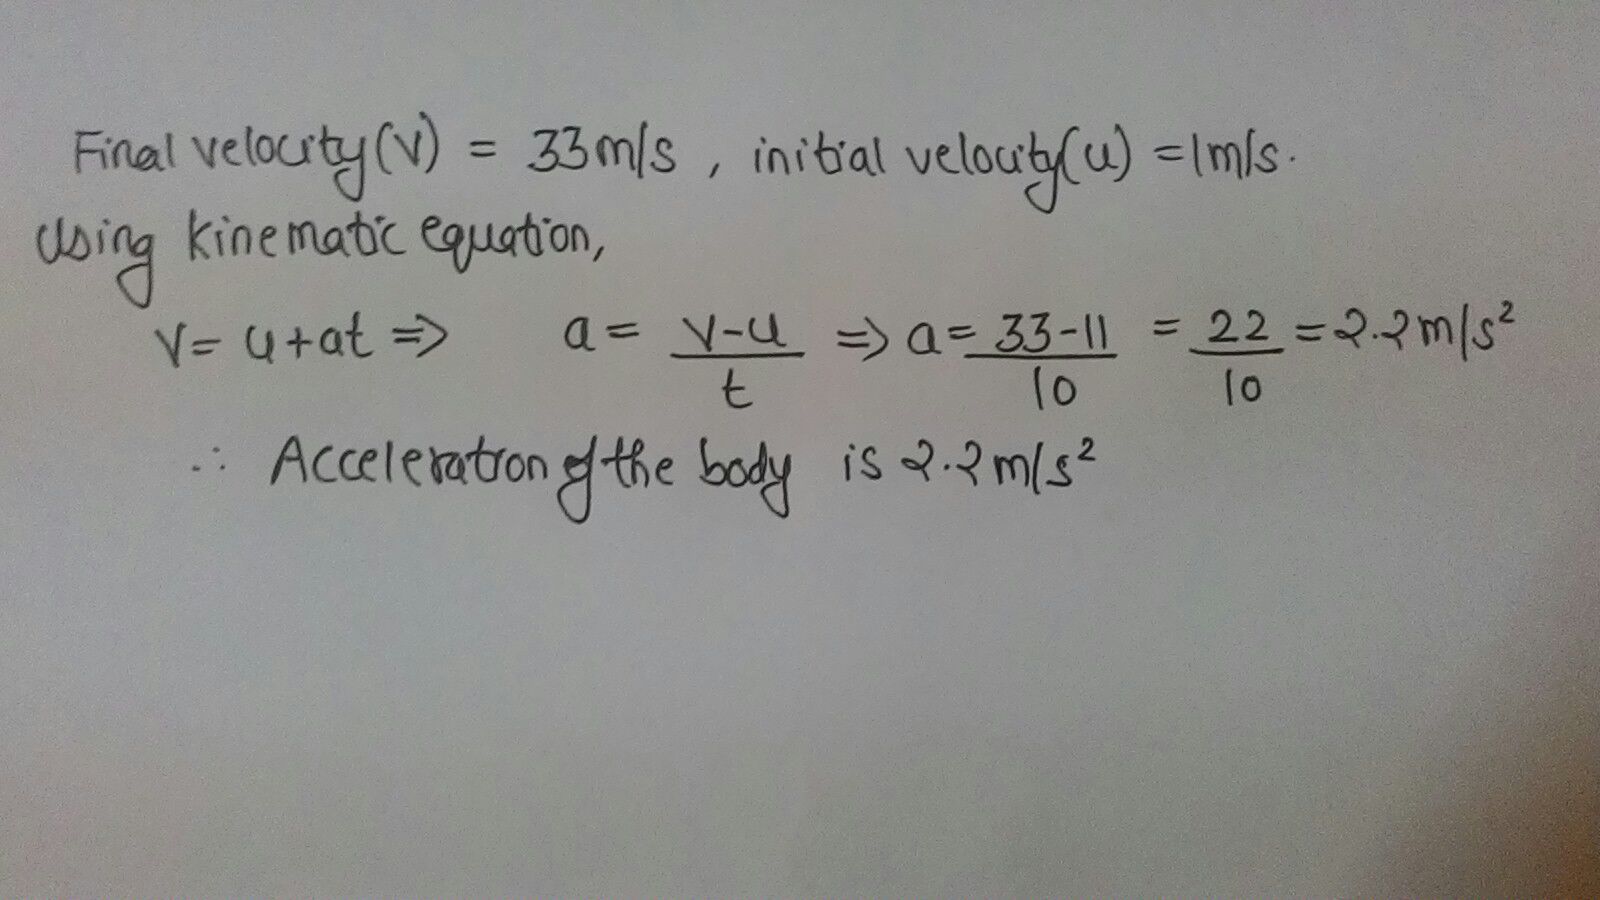 Final velocity(v) = 33m/s , initial velocity(u) =1m/s.
Using kinematic equation,
v= u+at => a= v-u/t => a= 33-11/10 = 22/10 = 2.2m/s²
∴ Acceleration of the body is 2.2m/s²